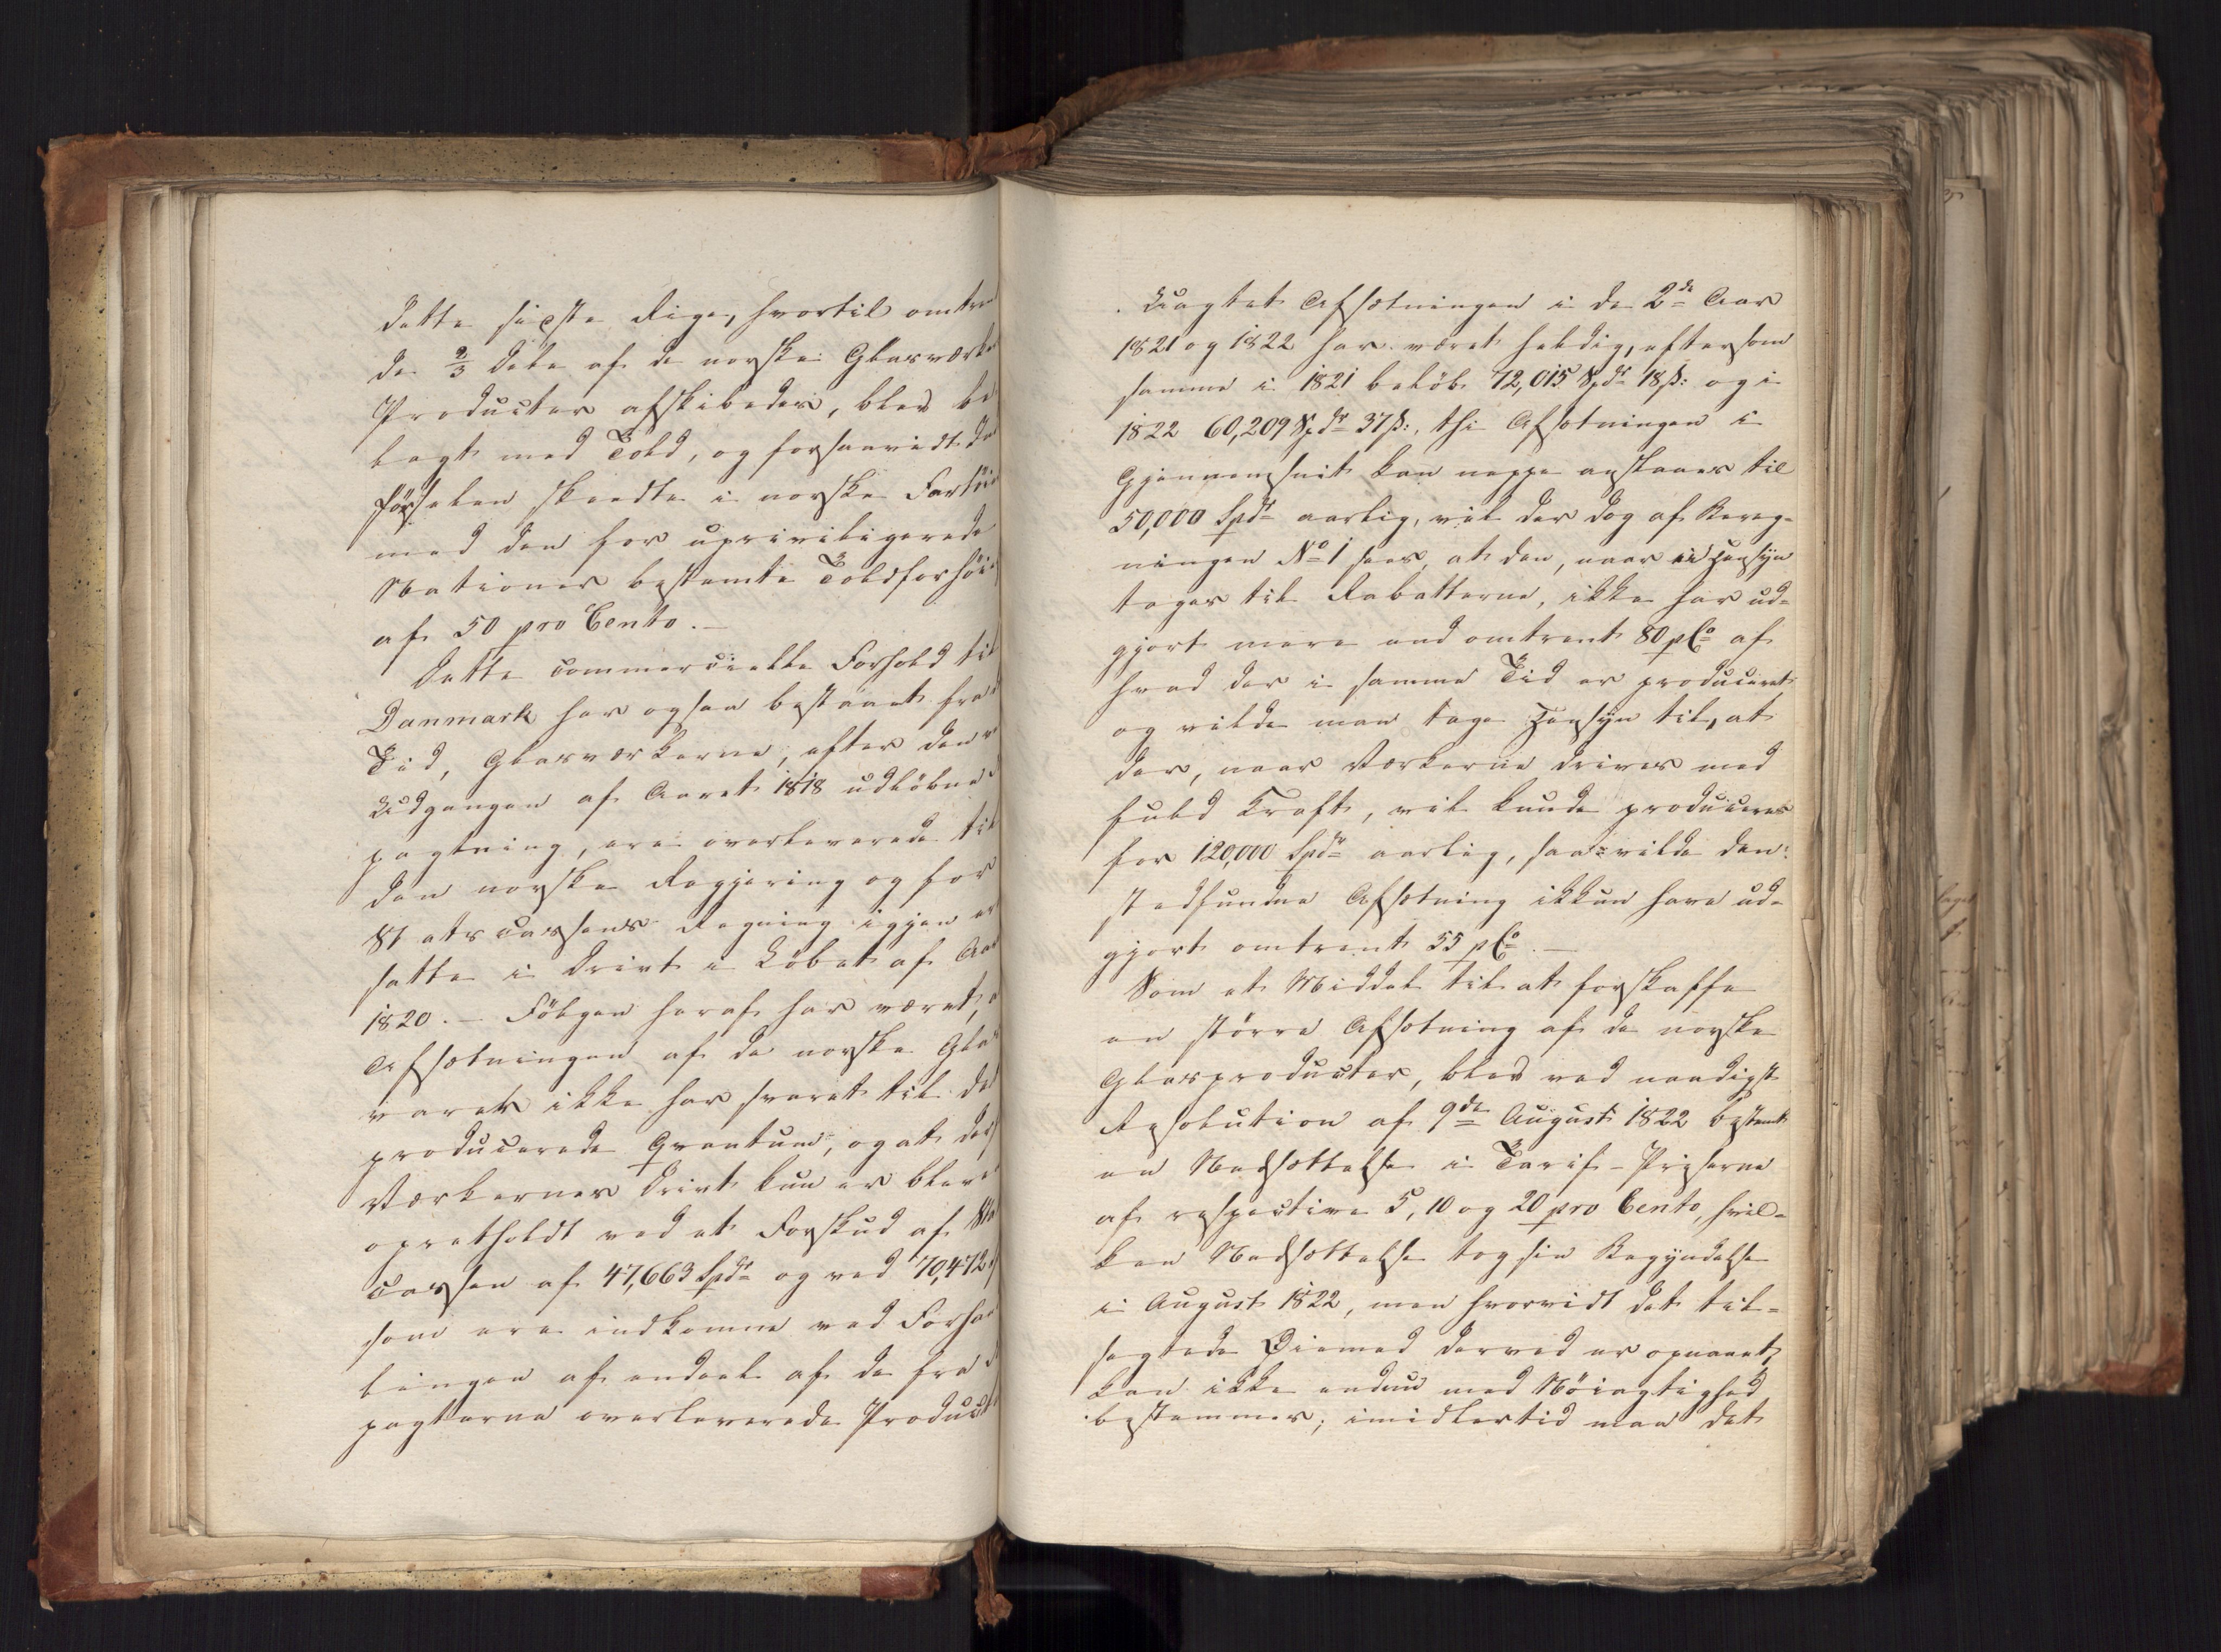 dette sidste Rige, hvortil omtre
de 2/3 Dele af de norske Glasværke
Producter afskibedes, blev be
lagt med Told, og forsaavidt Ud
førselen skeedte i norske Fartøi
med den for upriviligerede
Nationer bestemte Toldforhøi
af 50 pro Cento. –
Dette commercielle Forhold til
Danmark har ogsaa bestaaet fra
Tid, Glasværkerne, efter den v
Udgangen af Aaret 1818 udløbne
pagtning, ere overleverede til
den norske Regjering og for
Statscassens Regning igjen er
satte i Drivt i Løbet af Aar
1820. – Følgen heraf har været, a
Afsætningen af de norske Glas
varer ikke har svaret til det
producerede Qvantum, og at des
Værkernes Drivt kun er bleve
opretholdt ved et Forskud af Sta
cassen af 47,663 Spdr og ved 70,472
som ere indkomne ved Forhan
lingen af endeel af de fra
pagterne overleverede Product
Uagtet Afsætningen i de 2de Aar
1821 og 1822 har været heldig, eftersom
samme i 1821 beløb 72,015 Spdr 18 ß: og i
1822 60,209 Spdr 37 ß:, thi Afsætningen i
Gjennemsnit kan neppe anslaaes til
50,000 Spdr aarlig, vil der dog af Bereg-
ningen No 1 sees, at den, naar ei Hensyn
tages til Rabatterne, ikke har ud-
gjort mere end omtrent 80 pCo af
hvad der i samme Tid er produceret
og vilde man tage Hensyn til, at
der, naar Værkerne drives med
fuld Kraft, vil kunde produceres
for 120,000 Spdr aarlig, saa vilde den
stedfundne Afsætning ikkun have ud-
gjort omtrent 55 pCo. –
Som et Middel til at forskaffe
en større Afsætning af de norske
Glasproducter, blev ved naadigst
Resolution af 9de August 1822 bestemt
en Nedsættelse i Tarif-Priserne
af respective 5, 10 og 20 pro Cento, hvil-
ken Nedsættelse tog sin Begyndelse
i August 1822, men hvorvidt det til-
sigtede Øiemed derved er opnaaet,
kan ikke endnu med Nøiagtighed
bestemmes; imidlertid maa det